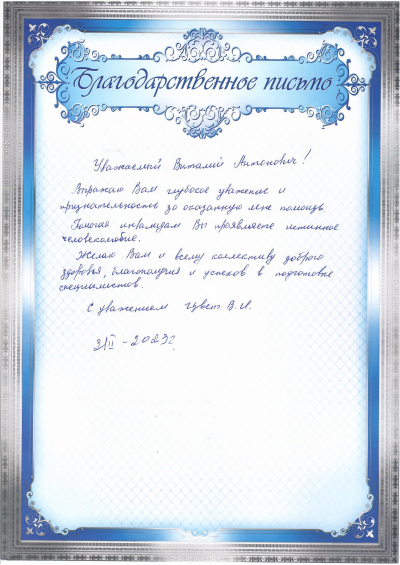 Благодарственное письмо
Уважаемый Виталий Антонович!
Выражаю Вам глубокое уважение и
признательность за оказанную мне помощь.
Помогая инвалидам Вы проявляете истинное
человеколюбие.
Желаю Вам и всему коллективу доброго
здоровья, благополучия и успехов в подготовке
специалистов.
С уважением Цвет В.И.
2/II - 2023г.